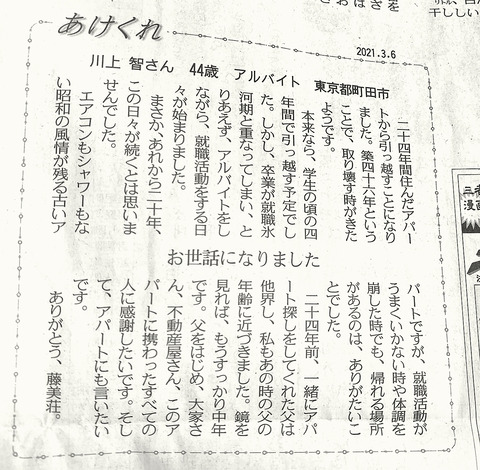 あけくれ
2021.3.6
川上 智さん 44歳 アルバイト 東京都町田市
二十四年間住んだアパー
トから引っ越すことになり
ました。築四十六年という
ことで、取り壊す時がきた
ようです。
本来なら、学生の頃の四
年間で引っ越す予定でし
た。しかし、卒業が就職氷
河期と重なってしまい、と
りあえず、アルバイトをし
ながら、就職活動をする日
々が始まりました。
まさか、あれから二十年、
この日々が続くとは思いま
せんでした。
エアコンもシャワーもな
い昭和の風情が残る古いア
お世話になりました
パートですが、就職活動が
うまくいかない時や体調を
崩した時でも、帰れる場所
があるのは、ありがたいこ
とでした。
二十四年前、一緒にアパ
ート探しをしてくれた父は
他界し、私もあの時の父の
年齢に近づきました。鏡を
見れば、もうすっかり中年
です。父をはじめ、大家さ
ん、不動産屋さん、このア
パートに携わったすべての
人に感謝したいです。そし
て、アパートにも言いたい
です。
ありがとう、藤美荘。